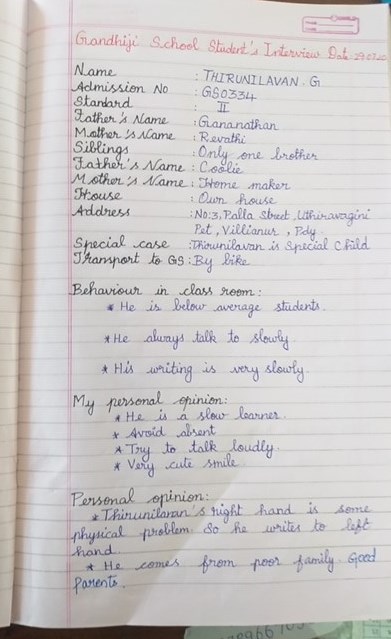 Gandhiji School Student's Interview Date:
Name : THIRUNILAVAN. G
Admission No : GS0334
Standard : II
Father's Name : Gananathan
Mother's Name : Revathi
Siblings : Only one brother
Father's Name : Coolie
Mother's Name : Home maker
House : Own house
Address : No:3, Palla Street, Uthiravagini
Pet, Villianur, Pdy.
Special case : Thirunilavan is Special Child
Transport to GS : By bike
Behaviour in class room :
* He is below average students.
* He always talk to slowly
* His writing is very slowly.
My personal opinion:
* He is a slow learner.
* Avoid absent
* Try to talk loudly.
* Very cute smile.
Personal opinion:
* Thirunilavan's right hand is some
physical problem. So he writes to left
hand.
* He comes from poor family. Good
Parents.